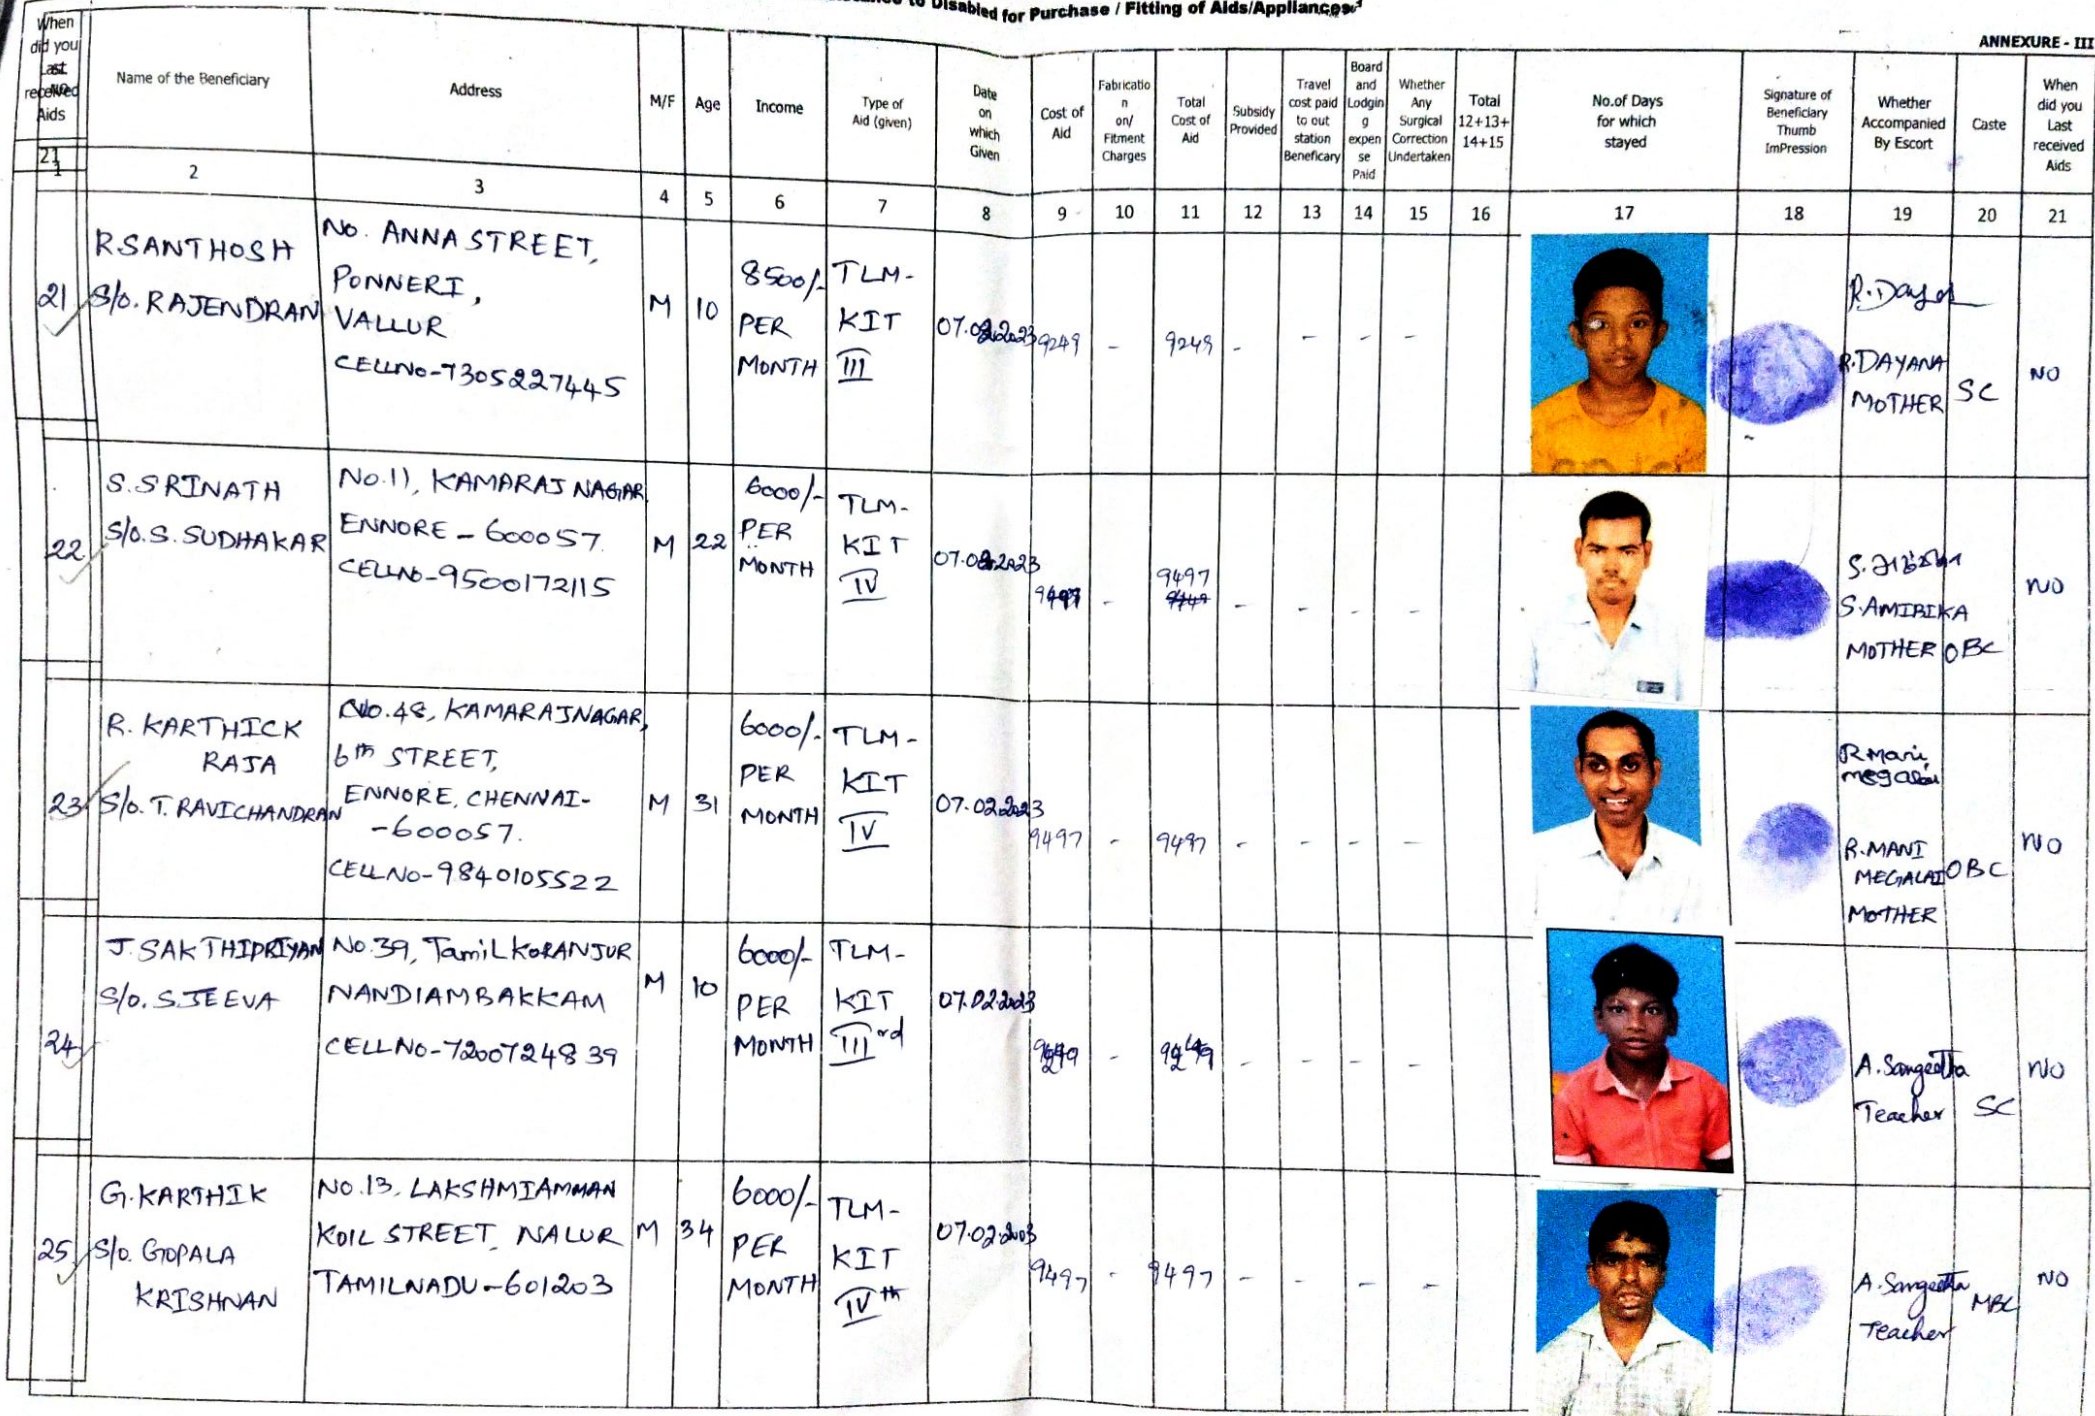 to Disabled for Purchase / Fitting of Aids/Appliances"
ANNEXURE - III
When did you Last received Aids
Name of the Beneficiary
Address
M/F
Age
Income
Type of Aid (given)
Date on which Given
Cost of Aid
Fabricatio n on/ Fitment Charges
Total Cost of Aid
Subsidy Provided
Travel cost paid to out station Beneficary
Board and Lodgin g expen se Paid
Whether Any Surgical Correction Undertaken
Total 12+13+ 14+15
No.of Days for which stayed
Signature of Beneficiary Thumb ImPression
Whether Accompanied By Escort
Caste
When did you Last received Aids
21
1 2 3 4 5 6 7 8 9 10 11 12 13 14 15 16 17 18 19 20 21
21
R.SANTHOSH
S/o. RAJENDRAN
No. ANNA STREET,
PONNERI,
VALLUR
CELLNO-7305227445
M
10
8500/-
PER
MONTH
TLM-
KIT
III
07.02.2023
9249
-
9249
-
-
-
-
R.DAYANA
MOTHER
SC
NO
22
S.SRINATH
S/o. S. SUDHAKAR
No.11, KAMARAJ NAGAR
ENNORE - 600057.
CELLNO-9500172115
M
22
6000/-
PER
MONTH
TLM-
KIT
IV
07.02.2023
9497
-
9497
-
-
-
-
S.AMIBIKA
MOTHER
OBC
NO
23
R. KARTHICK
RAJA
S/o. T. RAVICHANDRAN
No.48, KAMARAJNAGAR,
6th STREET,
ENNORE, CHENNAI-
-600057.
CELLNO-9840105522
M
31
6000/-
PER
MONTH
TLM-
KIT
IV
07.02.2023
9497
-
9497
-
-
-
-
R Mani
megalai
R.MANI
MEGALAI
MOTHER
OBC
NO
24
J. SAKTHIPRIYAN
S/o. S.JEEVA
No.39, Tamil KORANJUR
NANDIAMBAKKAM
CELLNO-7200724839
M
10
6000/-
PER
MONTH
TLM-
KIT
III rd
07.02.2023
-
-
-
-
-
A. Sangeetha
Teacher
SC
NO
25
G.KARTHIK
S/o. GOPALA
KRISHNAN
No.13, LAKSHMIAMMAN
KOIL STREET, NALUR
TAMILNADU-601203
M
34
6000/-
PER
MONTH
TLM-
KIT
IV th
07.02.2003
9497
-
9497
-
-
-
-
A. Sangeetha
Teacher
MBC
NO